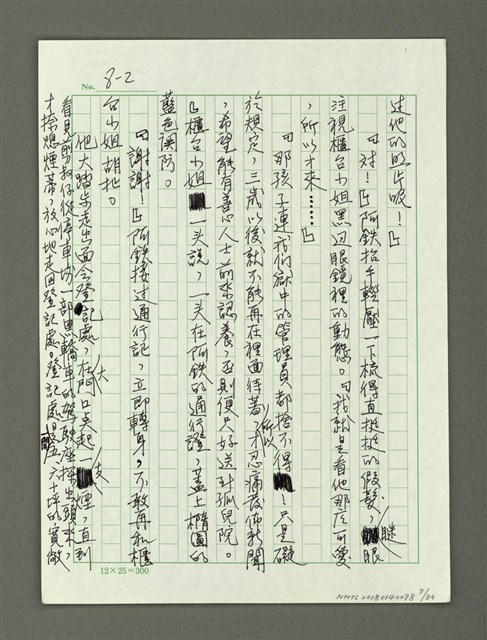 No. 8-2
過他的照片呢！」
「對！」阿鉄抬手輕壓一下梳得直挺挺的假髮，瞇眼
注視櫃台小姐黑边眼鏡裡的動態。「我就是看他那麼可愛
，所以才來……」
「那孩子連我們獄中的管理員都捨不得！只是礙
於規定，三歲以後就不能再在裡面待著，所以才忍痛發佈新聞
，希望能有善心人士前來認養，否則便只好送到孤兒院。
」櫃台小姐一头說，一头在阿鉄的通行證，蓋上橢圓的
藍色關防。
「謝謝！」阿鉄接过通行証，立即轉身，不敢再和櫃
台小姐胡扯。
他大踏步走出面会登記處，在大門口点起一支煙，直到
看見
從停車場一部黑轎車的駕駛座探出頭來，
才捺熄煙蒂，放心地走回登記處。登記處是座六十坪的寬敞
12×25＝300
NMTL20180140098 9/34